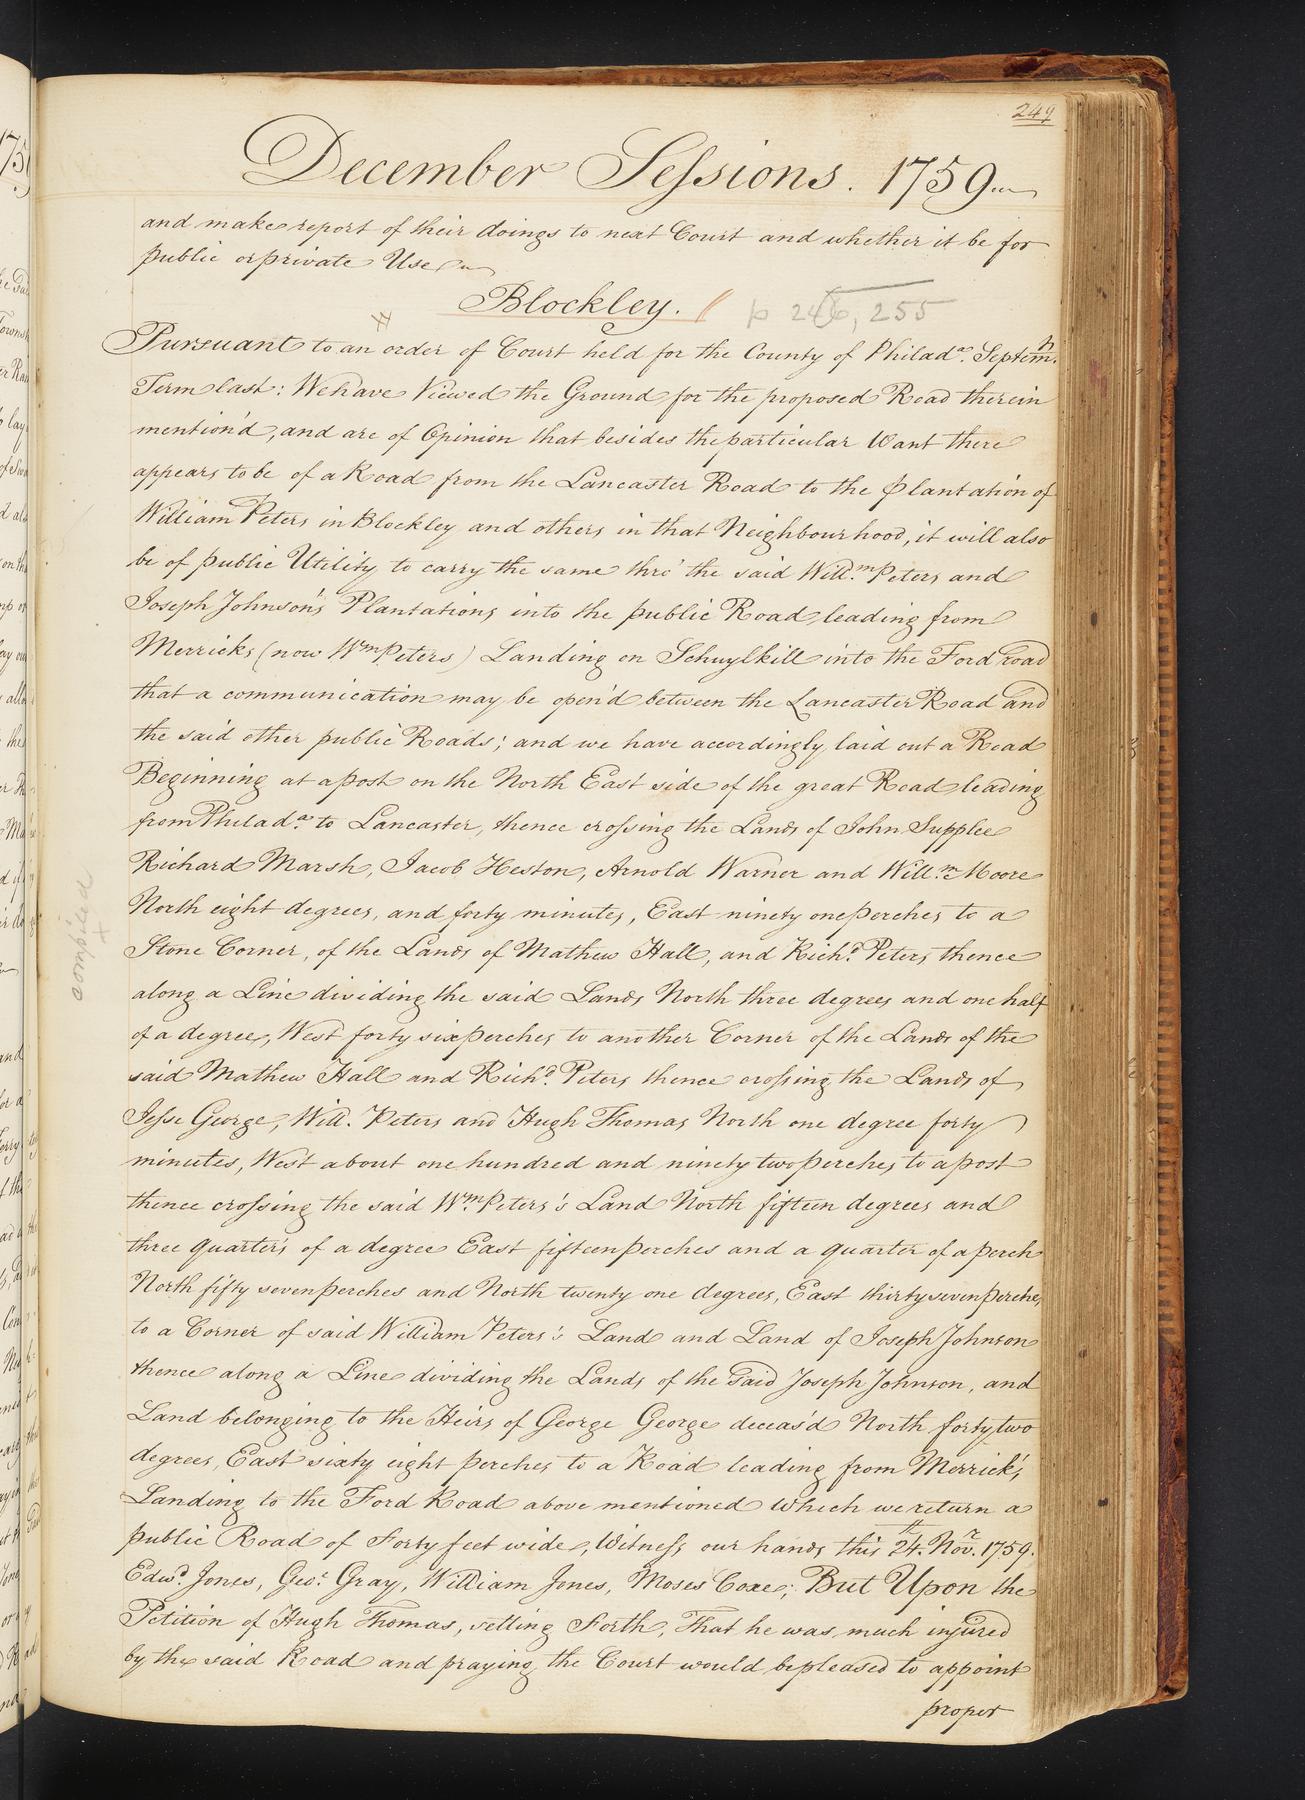 249
December Sessions. 1759
and make report of their doings to next Court and whether it be for
public or private Use
Blockley. p 246, 255
Pursuant to an order of Court held for the County of Philada. Septemr.
Term last: We have Viewed the Ground for the proposed Road therein
mention'd, and are of Opinion that besides the particular Want there
appears to be of a Road from the Lancaster Road to the Plantation of
William Peters in Blockley and others in that Neighbourhood, it will also
be of public Utility to carry the same thro' the said Willm. Peters and
Joseph Johnson's Plantations into the public Road, leading from
Merricks (now Wm Peters) Landing on Schuylkill into the Ford road
that a communication may be open'd between the Lancaster Road and
the said other public Roads; and we have accordingly laid out a Road
Beginning at a post on the North East side of the great Road leading
from Philada. to Lancaster, thence crossing the Lands of John Supplee
Richard Marsh, Jacob Heston, Arnold Warner and Willm. Moore
North eight degrees, and forty minutes, East ninety one perches to a
Stone Corner, of the Lands of Mathew Hall, and Richd. Peters thence
along a Line dividing the said Lands North three degrees and one half
of a degree, West forty six perches to another Corner of the Lands of the
said Mathew Hall and Richd. Peters thence crossing the Lands of
Jesse George, Will. Peters and Hugh Thomas North one degree forty
minutes, West about one hundred and ninety two perches to a post
thence crossing the said Wm. Peters's Land North fifteen degrees and
three quarters of a degree East fifteen perches and a quarter of a perch
North fifty seven perches and North twenty one degrees, East thirty seven perches
to a Corner of said William Peters's Land and Land of Joseph Johnson
thence along a Line dividing the Lands of the said Joseph Johnson, and
Land belonging to the Heirs of George George deceas'd North forty two
degrees, East sixty eight perches to a Road leading from Merrick's
Landing to the Ford Road above mentioned which we return a
public Road of Forty feet wide, Witness our hands this 24th. Novr. 1759.
Edwd. Jones, Geo: Gray, William Jones, Moses Coxe; But Upon the
Petition of Hugh Thomas, setting Forth, That he was much injured
by the said Road and praying the Court would be pleased to appoint
proper
compiled